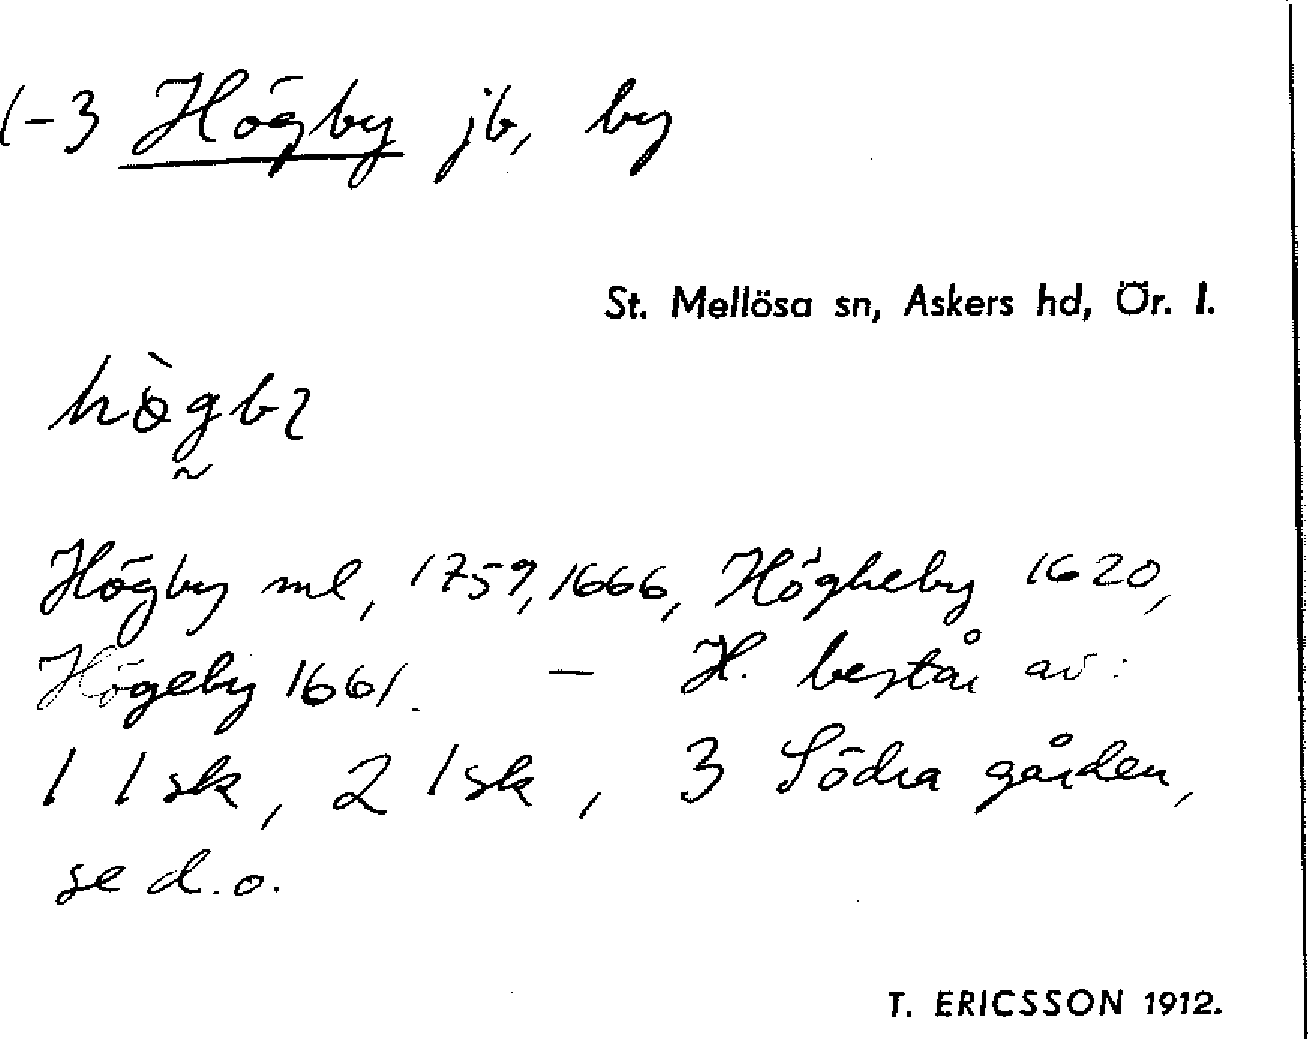 1-3 Högby jb, by
St. Mellösa sn, Askers hd, Ör. l.
Högby ml, 1759, 1666, Högheby 1620,
Högeby 1661. – H. består av:
1 1 sk, 2 1 sk, 3 Södra gården,
se d.o.
T. ERICSSON 1912.